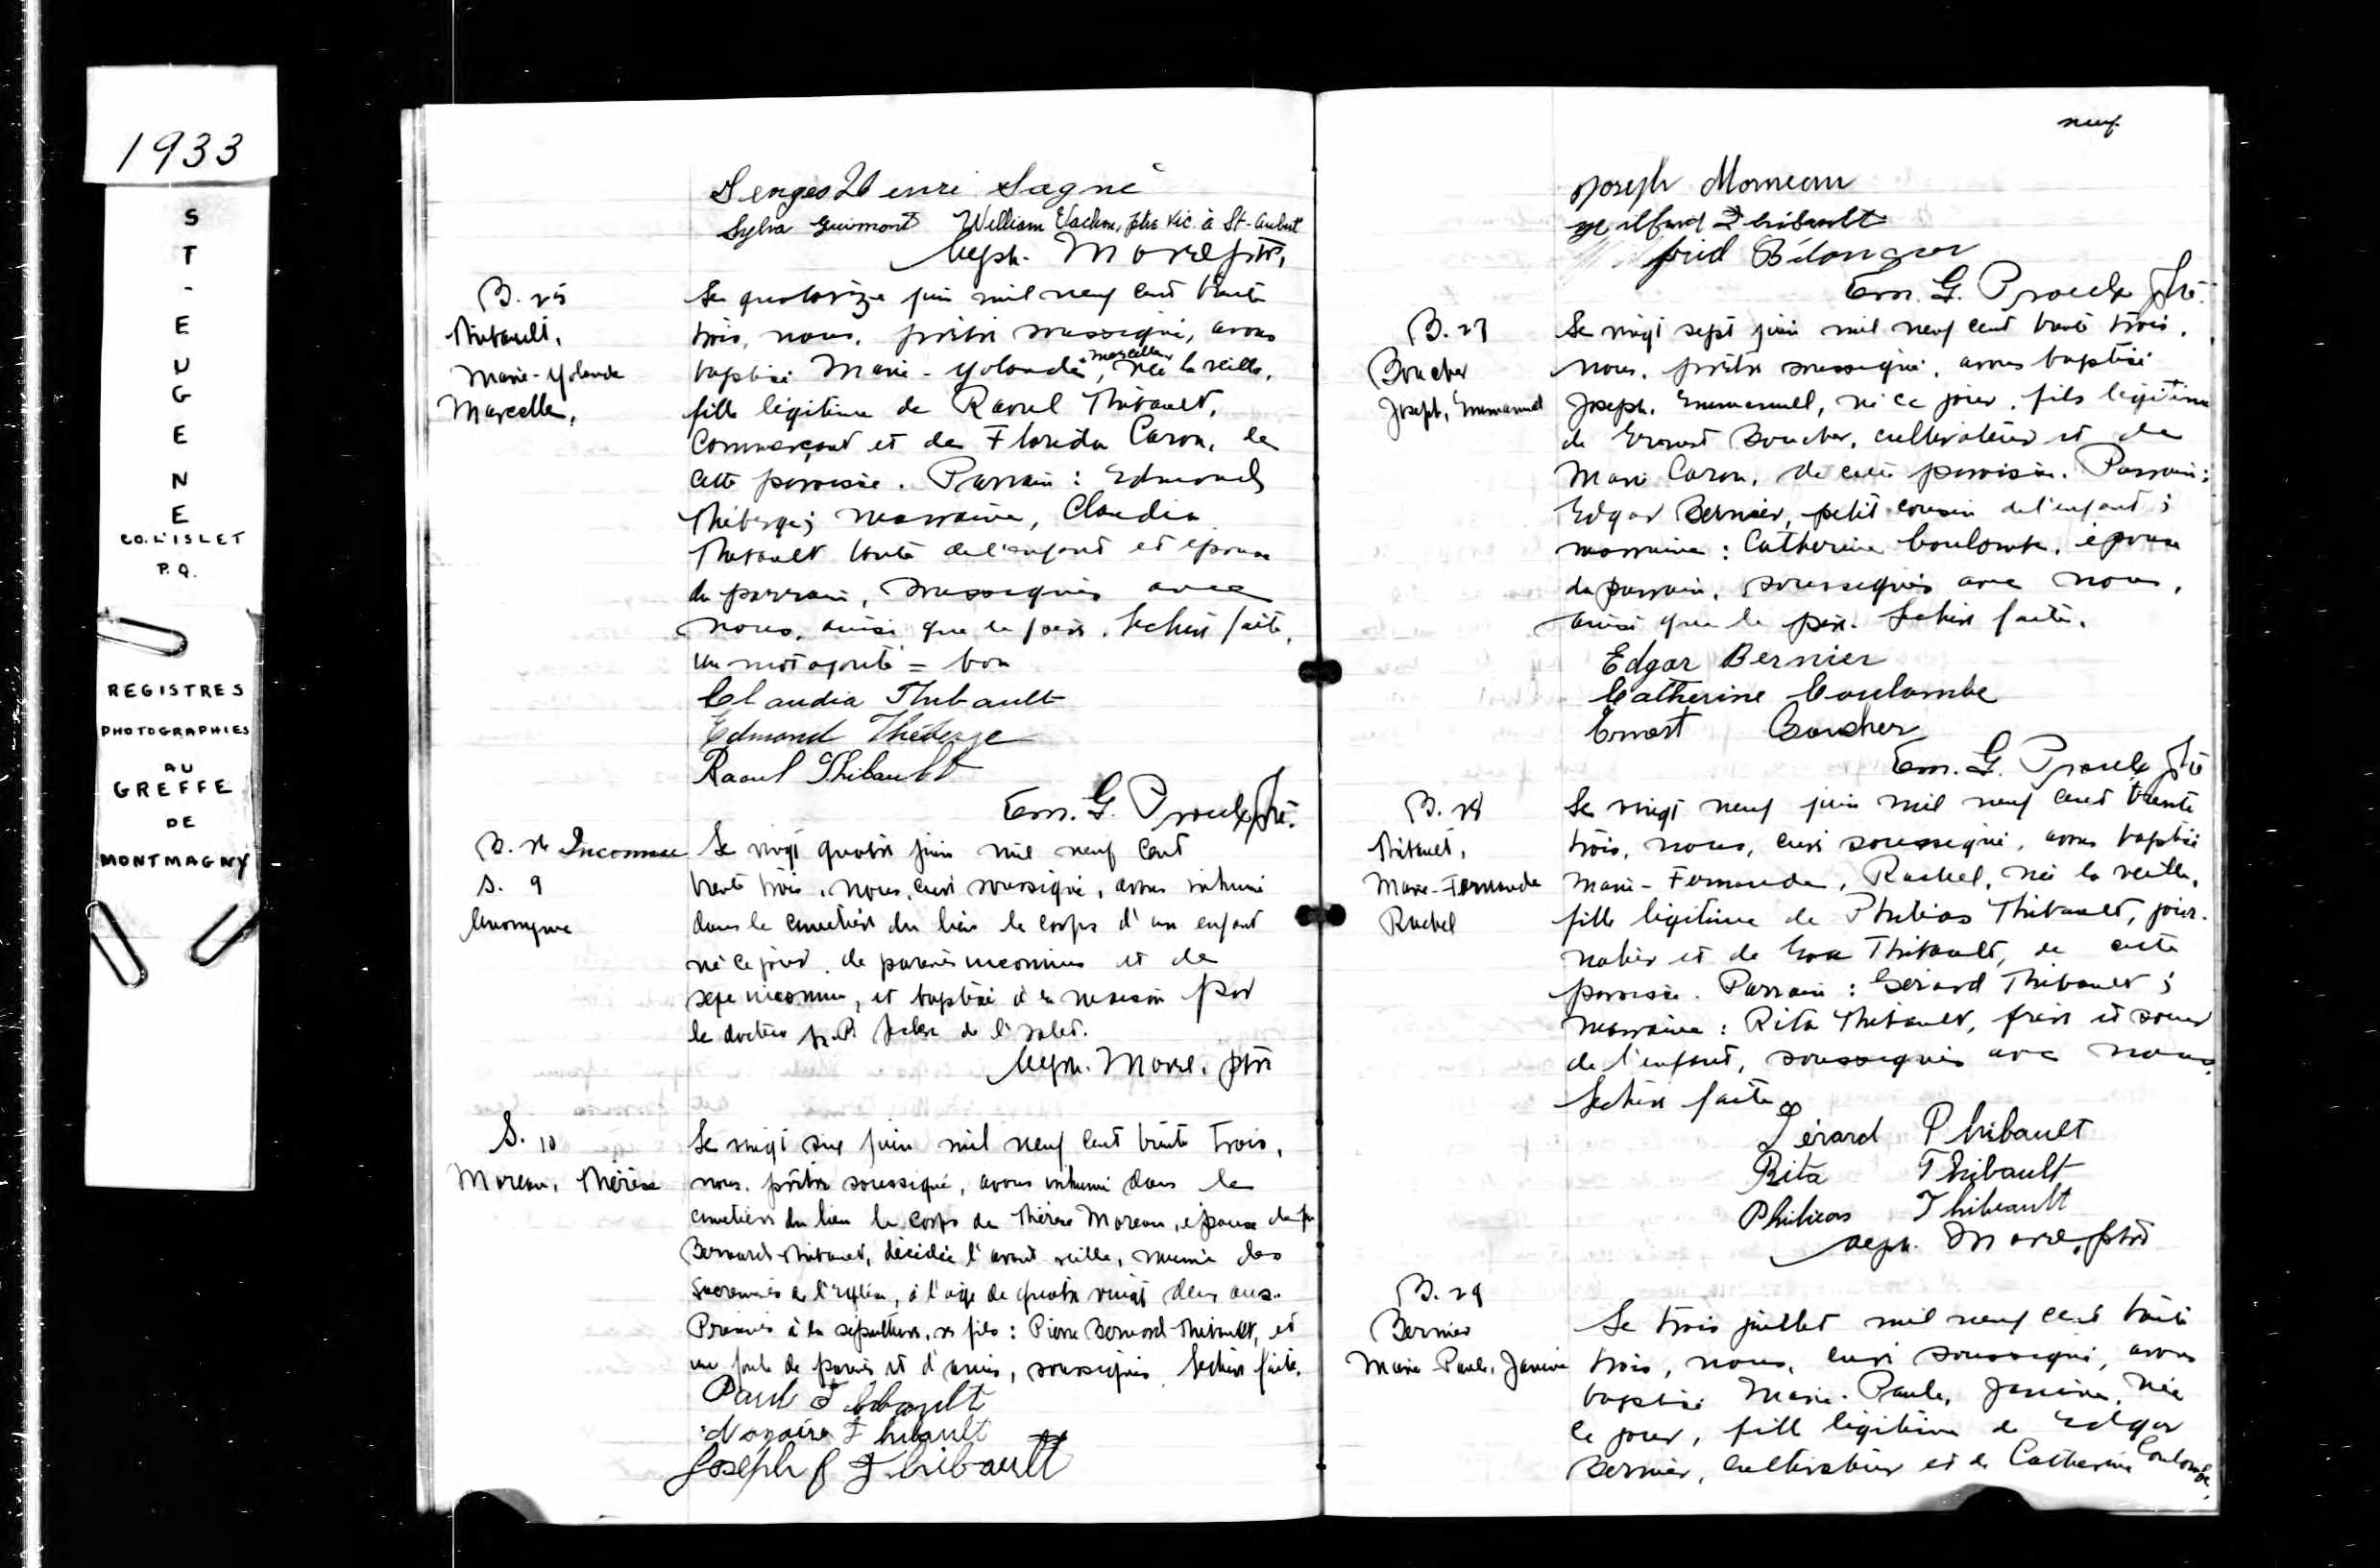 1933
ST-EUGENE
CO. L'ISLET
P.Q.
REGISTRES
PHOTOGRAPHIES
AU
GREFFE
DE
MONTMAGNY
Henri Gagné
Sylva Guimont William Vachon, ptre vic. à St-Aubert
Morel ptre,
B. 25
Thibault,
Marie-Yolande
Marcelle,
Le quatorze juin mil neuf cent trente
trois, nous, prêtre soussigné, avons
baptisé Marie-Yolande, Marcelle, née la veille,
fille légitime de Raoul Thibault,
commerçant et de Florida Caron, de
cette paroisse. Parrain : Edmond
Théberge; marraine, Claudia
Thibault tante de l'enfant et épouse
du parrain, soussignés avec
nous, ainsi que le père. Lecture faite,
un mot ajouté = bon
Claudia Thibault
Edmond Théberge
Raoul Thibault
Em. G. Proulx Ptre.
B. 26 Inconnue
S. 9
Anonyme
Le vingt quatre juin mil neuf cent
trente trois, nous, curé soussigné, avons inhumé
dans le cimetière du lieu le corps d'un enfant
né ce jour, de parents inconnus et de
sexe inconnu, et baptisé à la maison par
le docteur de l'Islet.
Morel, ptre
S. 10
Moreau, Thérèse
Le vingt six juin mil neuf cent trente trois,
nous, prêtre soussigné, avons inhumé dans le
cimetière du lieu le corps de Thérèse Moreau, épouse de feu
Bernard Thibault, décédée l'avant veille, munie des
Sacrements de l'Eglise, à l'âge de quatre vingt deux ans.
Présents à la sépulture, ses fils : Pierre Bernard Thibault, et
une foule de parents et d'amis, soussignés. Lecture faite.
Paul Thibault
Nazaire Thibault
Joseph Thibault
neuf
Joseph Morneau
Wilfrid Thibault
Bélanger
Em. G. Proulx Ptre.
B. 27
Boucher
Joseph, Emmanuel
Le vingt sept juin mil neuf cent trente trois,
nous, prêtre soussigné, avons baptisé
Joseph, Emmanuel, né ce jour, fils légitime
de Ernest Boucher, cultivateur et de
Marie Caron, de cette paroisse. Parrain :
Edgar Bernier, petit cousin de l'enfant ;
marraine : Catherine Coulombe, épouse
du parrain, soussignés avec nous,
ainsi que le père. Lecture faite.
Edgar Bernier
Catherine Coulombe
Ernest Boucher
Em. G. Proulx Ptre
B. 28
Thibault,
Marie-Fernande
Rachel
Le vingt neuf juin mil neuf cent trente
trois, nous, curé soussigné, avons baptisé
Marie-Fernande, Rachel, née la veille,
fille légitime de Philias Thibault, jour-
nalier et de Eva Thibault, de cette
paroisse. Parrain : Gérard Thibault ;
marraine : Rita Thibault, frère et soeur
de l'enfant, soussignés avec nous.
Lecture faite.
Gérard Thibault
Rita Thibault
Philias Thibault
Morel, ptre
B. 29
Bernier
Marie Paule, Janine
Le trois juillet mil neuf cent trente
trois, nous, curé soussigné, avons
baptisé Marie-Paule, Janine, née
ce jour, fille légitime de Edgar
Bernier, cultivateur et de Catherine Coulombe,